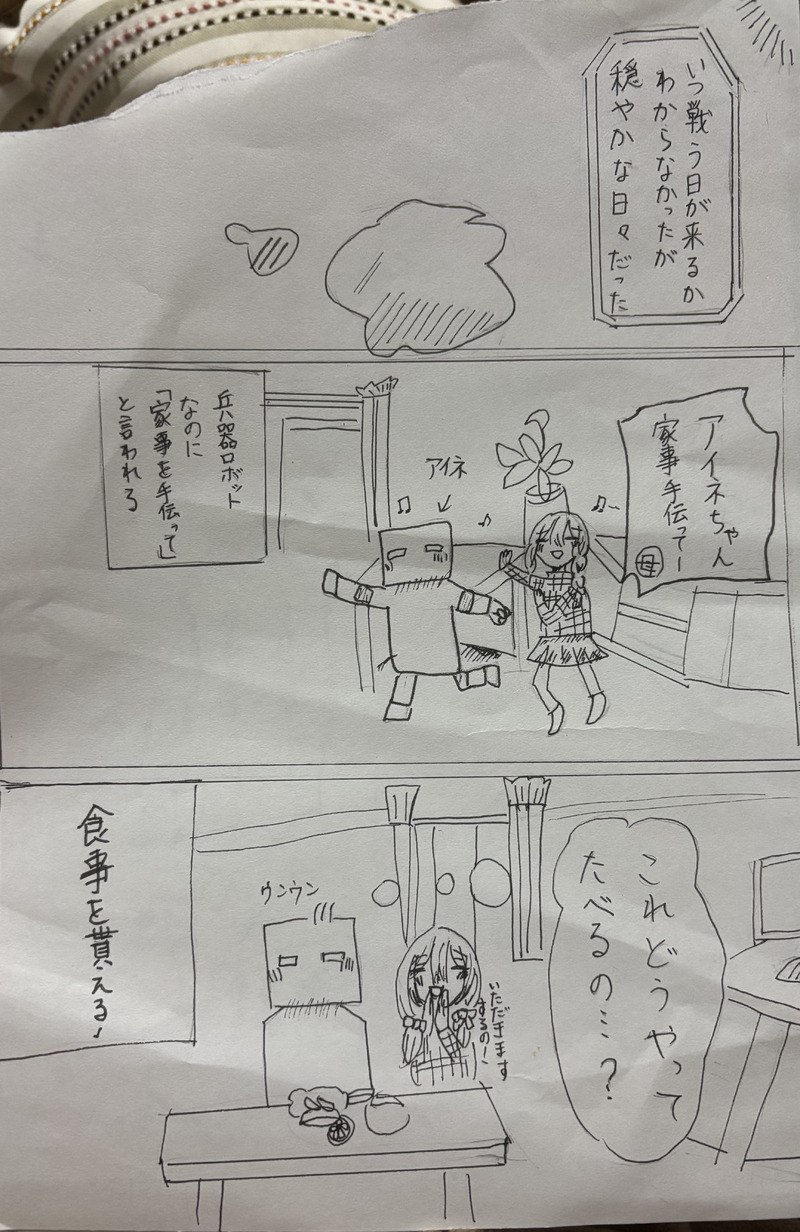 いつ戦う日が来るか
わからなかったが
穏やかな日々だった
アイネちゃん
家事手伝ってー
母
アイネ
兵器ロボット
なのに
「家事を手伝って」
と言われる
これどうやって
たべるの…?
いただきます
するの!
ウンウン
食事を貰える!